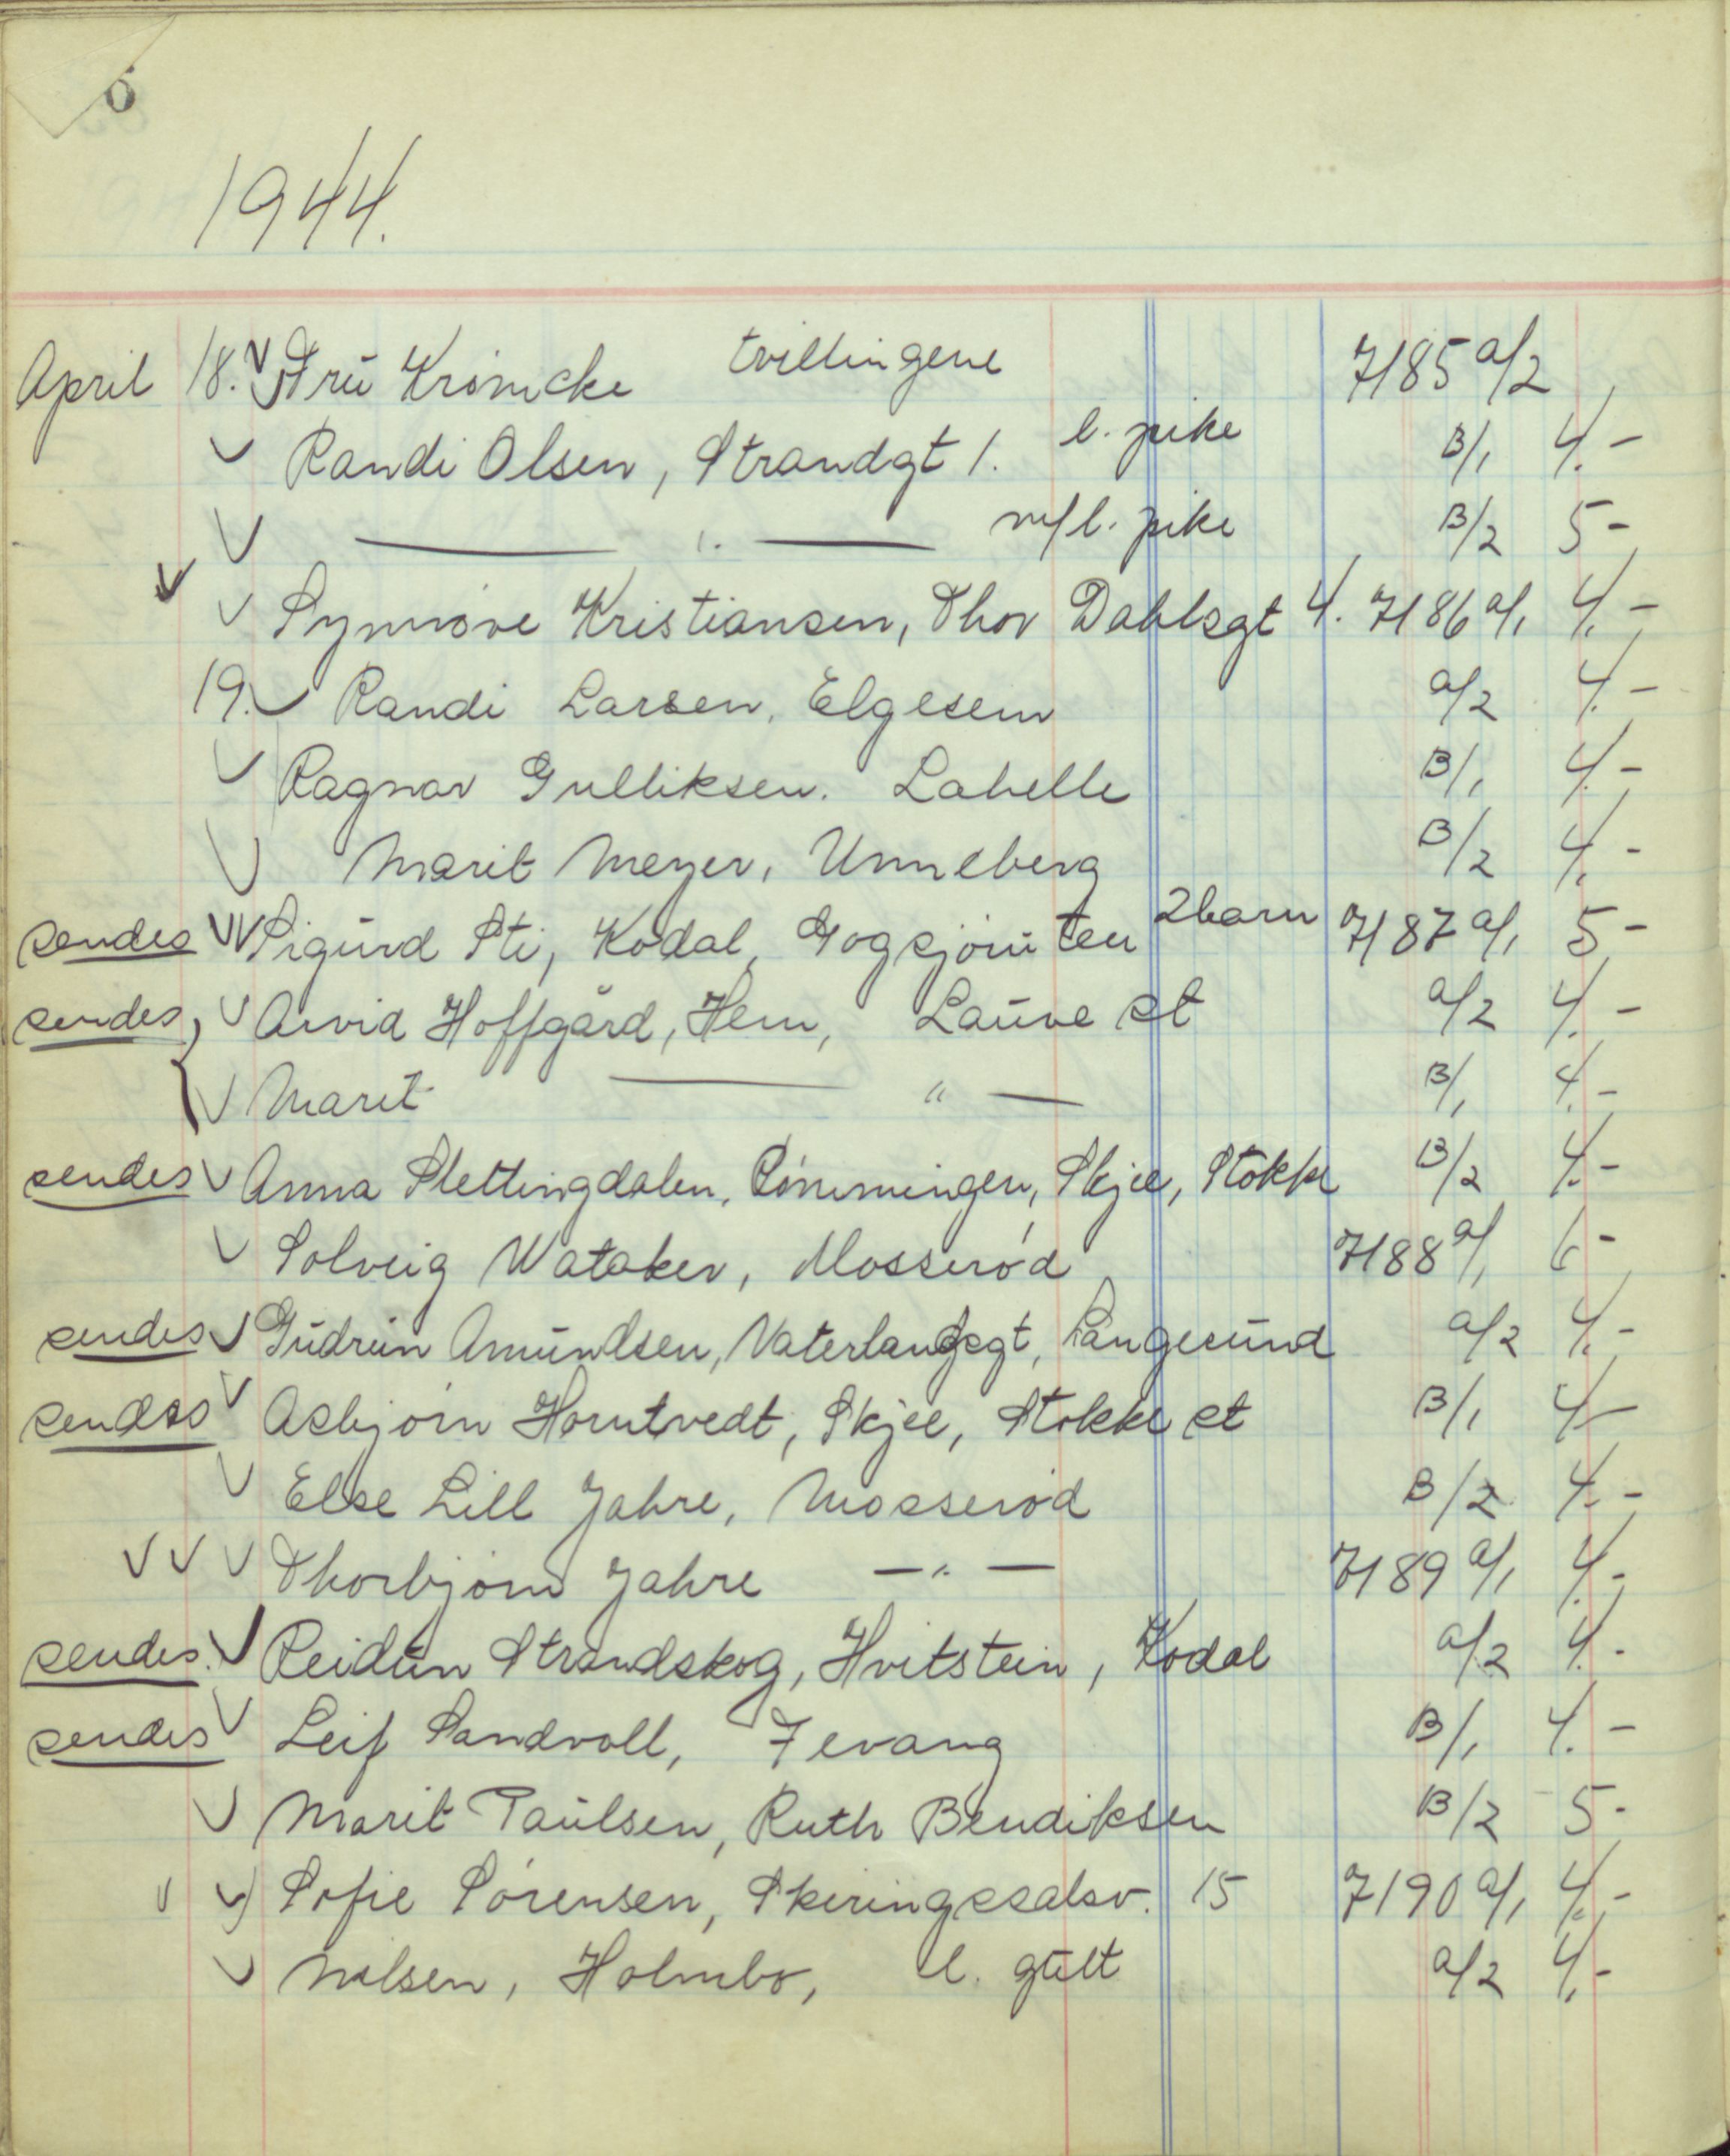 6
1944.
April 18. Fru Krömcke tvillingene 7185 a/2
Randi Olsen, Strandgt 1. l. pike B/1 4.-
—— " —— m/l. pike B/2 5-
Synnöve Kristiansen, Thor Dahlsgt 4. 7186 a/1 4.-
19. Randi Larsen, Elgesem a/2 4.-
Ragnar Gulliksen. Labelle B/1 4.-
Marit Meyer, Unneberg B/2 4.-
sendes Sigurd Sti, Kodal, 2 barn 7187 a/1 5-
sendes, Arvid Hoffgård, Hem, Lauve st a/2 4.-
Marit —— " — B/1 4.-
sendes Anna Slettingdalen, Rönningen, Skjee, Stokke B/2 4.-
Solveig Wataker, Mosseröd 7188 a/1 6-
sendes Gudrun Amundsen, Vaterlandsgt, Langesund a/2 4.-
sendes Asbjörn Horntvedt, Skjee, Stokke st B/1 4-
Else Lill Jahre, Mosseröd B/2 4.-
Thorbjörn Jahre — " — 7189 a/1 4.-
sendes. Reidun Strandskog, Hvitstein, Kodal a/2 4.-
sendes Leif Sandvoll, Fevang B/1 4.-
Marit Paulsen, Ruth Bendiksen B/2 5-
Sofie Sörensen, Skiringssalsv. 15 7190 a/1 4.-
Nilsen, Holmbo, l. gutt a/2 4.-